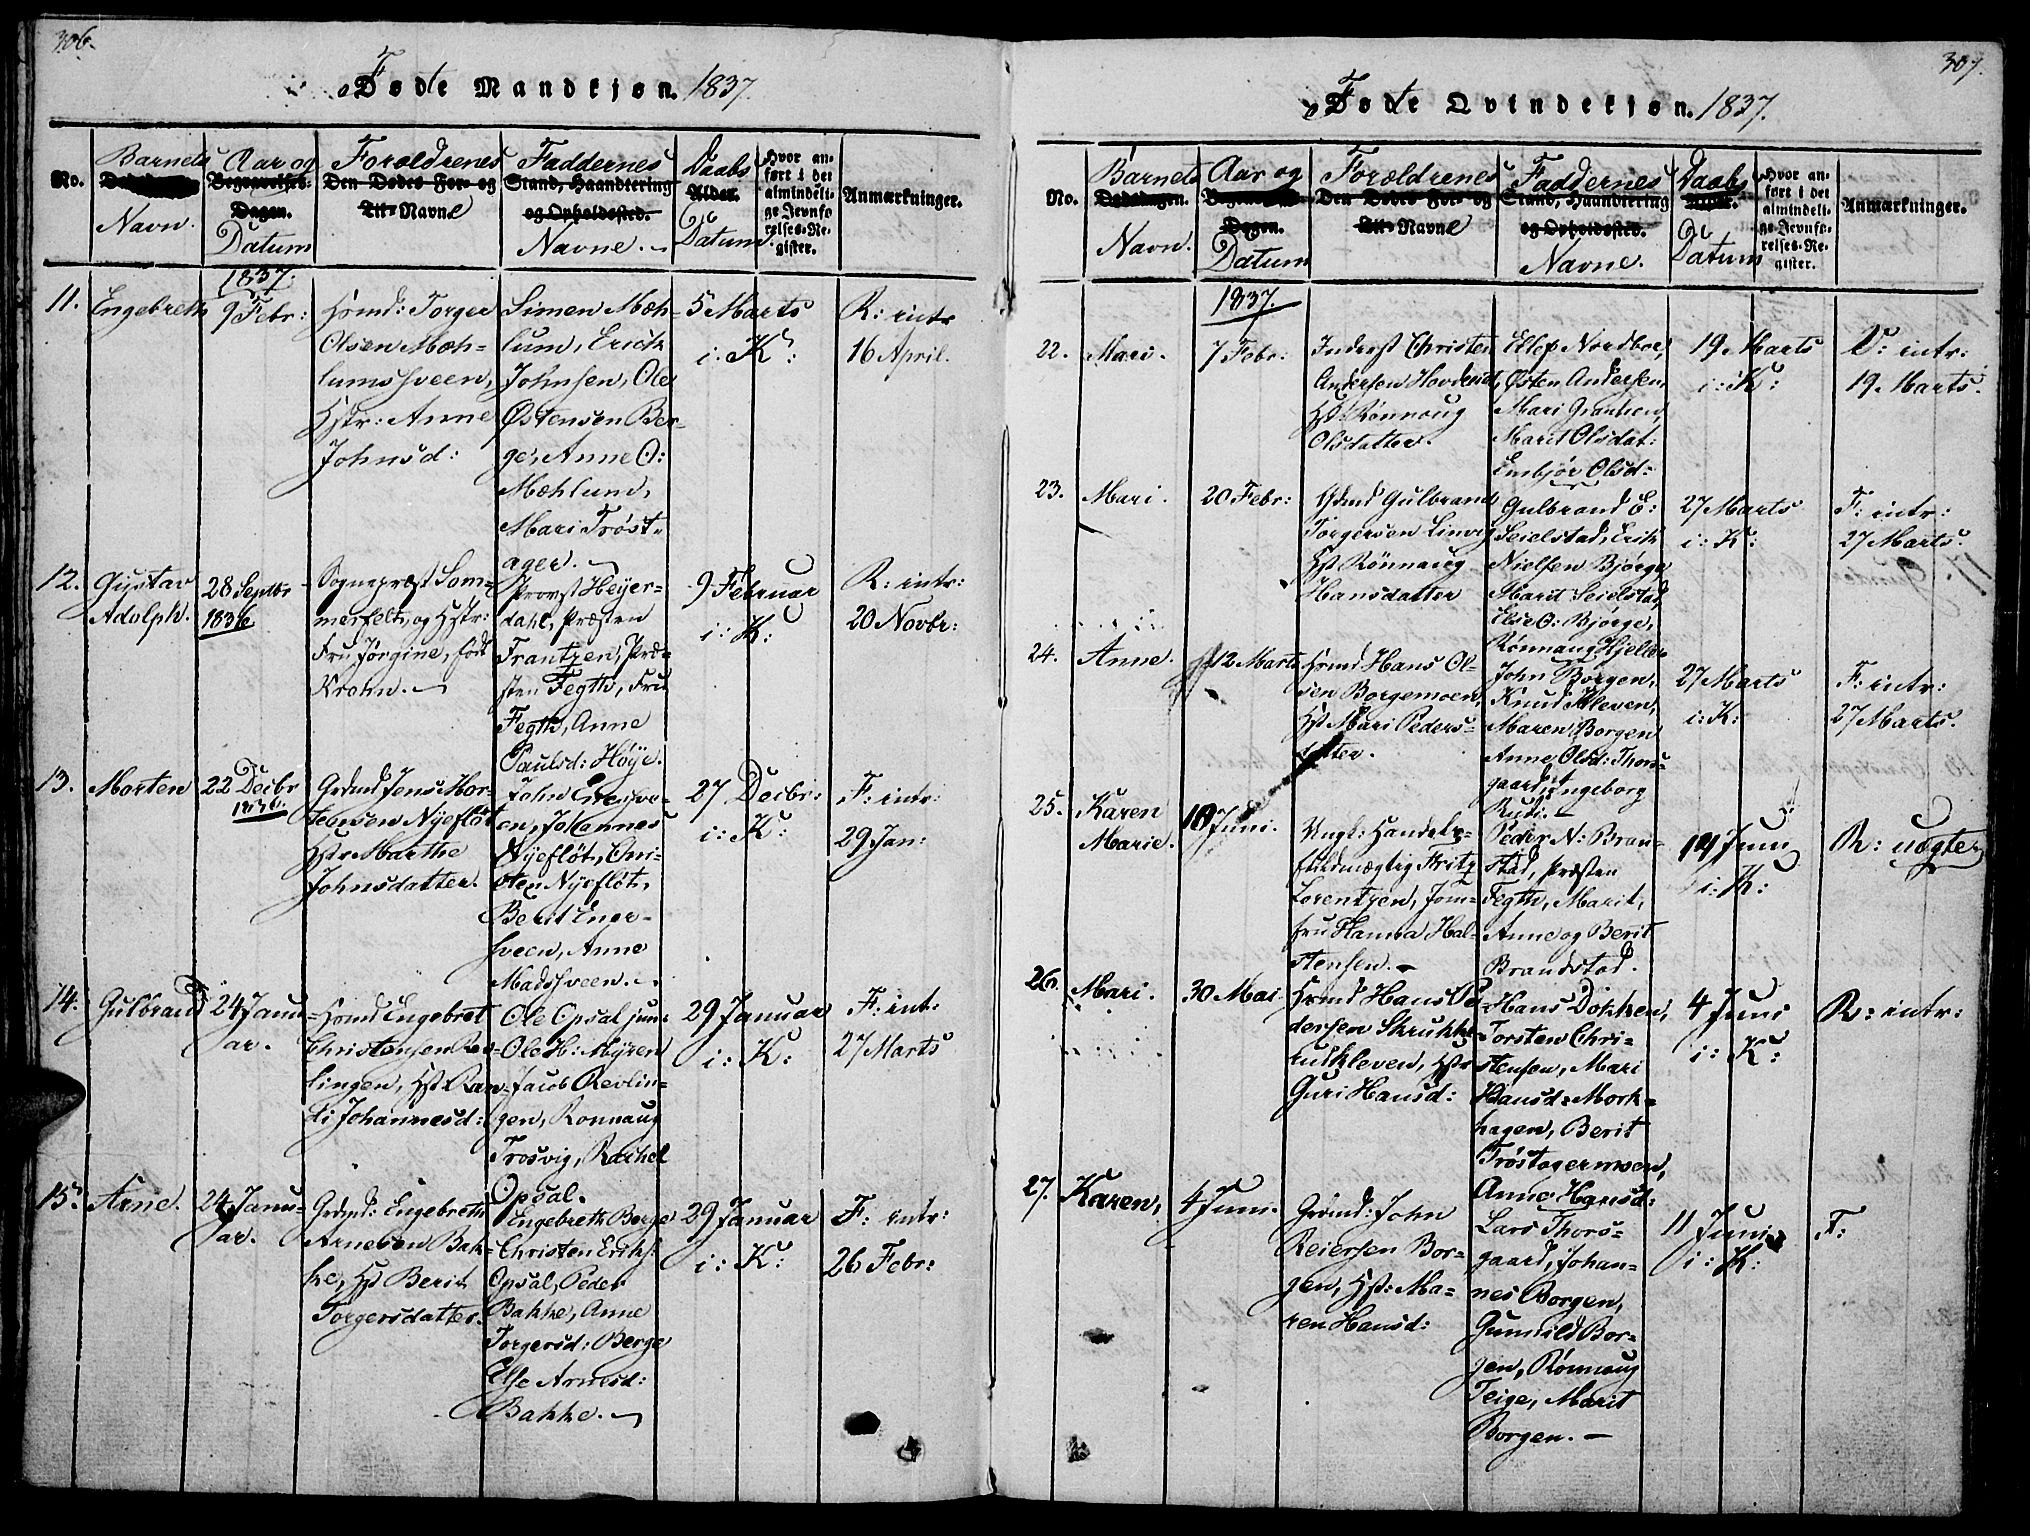 306.
Føde Mandkjøn. 1837.
No.
Barnets
Navn.
Aar og
Begravelses-
Dagen.
Datum
Forældrenes
Den Dødes For- og
Til-Navne
Faddernes
Stand, Haandtering
og Opholdssted.
Navne.
Daabs
Alder.
Datum
Hvor an-
ført i det
almindeli-
ge Jevnfø
relses-Re-
gister.
Anmærkninger.
1837.
11.
Engebreth
9 Febr:
Hsmd: Torger
Olsen Mæh-
lumssveen,
Hstr: Anne
Johnsd:
Simen Mæh-
lum, Erich
Johnsen, Ole
Østensen Ber-
ge, Anne O:
Mæhlum,
Mari Trøst-
ager.
5 Marts
i: K:
R: intr
16 April.
12.
Gustav
Adolph.
28 Septbr
1836
Sognepræst Som-
merfelt, og Hstr:
Fru Jørgine, født
Krohn.
Provst Heyer-
dahl, Præsten
Frantzen, Præ-
sten Fegth, Fru
Fegth, Anne
Paulsd: Høye.
9 Februar
i: K:
R: intr:
20 Novbr:
13.
Morten
22 Decbr
1836.
Grdmd Jens Mor-
tensen Nyefløt
Hstr Marthe
Johnsdatter.
John Engesve-
en, Johannes
Nyefløt, Chri-
sten Nyefløt,
Berit Enge-
sveen, Anne
Madssveen.
27 Decbr:
i: K:
F: intr:
29 Jan:
14.
Gulbrand
24 Janu-
ar.
Hsmd Engebret
Christensen Rev-
lingen, Hst Ran-
di Johannesd:
Ole Opsal jun:
Ole H: Myren
Jacob Revlin-
gen, Ronnaug
Trosvig, Rachel
Opsal.
29 Januar
i: K:
F: intr:
27 Marts
15.
Arne.
24 Janu-
ar.
Grdmd: Engebreth
Arnesen Bak-
ke, Hst Berit
Torgersdatter.
Engebreth Berge
Christen Eriks:
Opsal, Peder
Bakke, Anne
Torgersd: Berge
Else Arnesd:
Bakke.
29 Januar
i: K:
F: intr:
26 Febr:
307.
Føde Qvindekjøn. 1837.
No.
Barnets
Navn.
Aar og
Dagen.
Datum
Forældrenes
Den Dødes For- og
Til-Navne
Faddernes
Stand, Haandtering
og Opholdssted.
Navne.
Daabs
Alder.
Datum
Hvor an-
ført i det
almindeli-
ge Jevnfø-
relses-Re-
gister.
Anmærkninger.
1837.
22.
Mari.
7 Febr:
Inderst Christen
Andersen Hovdeeid,
Hst Rønnoug
Olsdatter.
Ellef Nordboe,
Østen Andersen,
Mari
Marit Olsdat:
Embjør Olsd:
19 Marts
i: K:
V: intr:
19 Marts.
23.
Mari.
20 Febr:
Grdmd Gulbrand
Torgersen Linvig
Hst Rønnaug
Hansdatter
Gulbrand E:
Seielstad, Erik
Nielsen Bjørge
Marit Seielstad,
Else O: Bjørge,
Rønnaug Hjelle
27 Marts
i: K:
F: intr:
27 Marts.
24.
Anne.
12 Marts
Hsmd Hans Ol-
sen Borgemoen,
Hst Mari Peders-
datter.
John Borgen,
Knud Kleven,
Maren Borgen
Anne Olsd: Thors-
gaard, Ingeborg
Rudi.
27 Marts
i: K:
F: intr:
27 Marts.
25.
Karen
Marie.
10 Juni.
Ungk: Handels-
fuldmægtig Fritz
Lorentzen, Jom-
fru Hanna Hal-
stensen.
Peder N: Bran-
stad, Præsten
Fegth, Marit,
Anne og Berit
Brandstad.
Juni
i: K:
R: uægte.
26.
Mari.
30 Mai.
Hsmd Hans Pe-
dersen Skrukke-
rudkleven, Hstr
Guri Hansd:
Hans Dokken,
Torsten Chri-
stensen, Mari
Hansd: Mork-
hagen, Berit
Trøstagermoen,
Anne Hansd:
4 Juni
i: K:
R: intr:
27.
Karen,
4 Juni.
Grdmd: John
Reiersen Bor-
gen, Hst: Ma-
ren Hansd:
Lars Thors-
gaard, Johan-
nes Borgen,
Gunnild Bor-
gen, Rønnaug
Teige, Marit
Borgen.
11 Juni
i: K:
F: